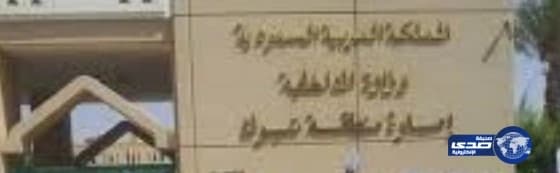 المملكة العربية السعودية
وزارة الداخلية
إمارة منطقة تبوك
صحيفة
صدى
الإلكترونية